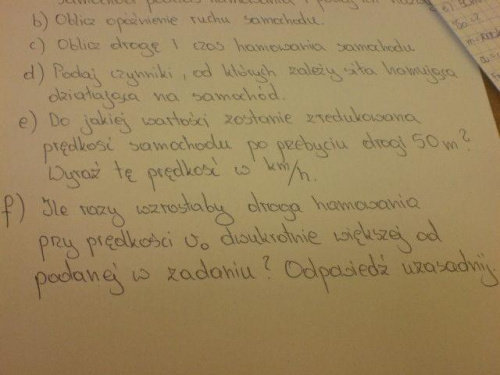 samochód podczas hamowania i podaj ich
b) Oblicz opóźnienie ruchu samochodu.
c) Oblicz drogę i czas hamowania samochodu
d) Podaj czynniki, od których zależy siła hamująca
działająca na samochód.
e) Do jakiej wartości zostanie zredukowana
prędkość samochodu po przebyciu drogi 50 m?
Wyraź tę prędkość w km/h.
f) Ile razy wzrosłaby droga hamowania
przy prędkości v₀ dwukrotnie większej od
podanej w zadaniu? Odpowiedź uzasadnij